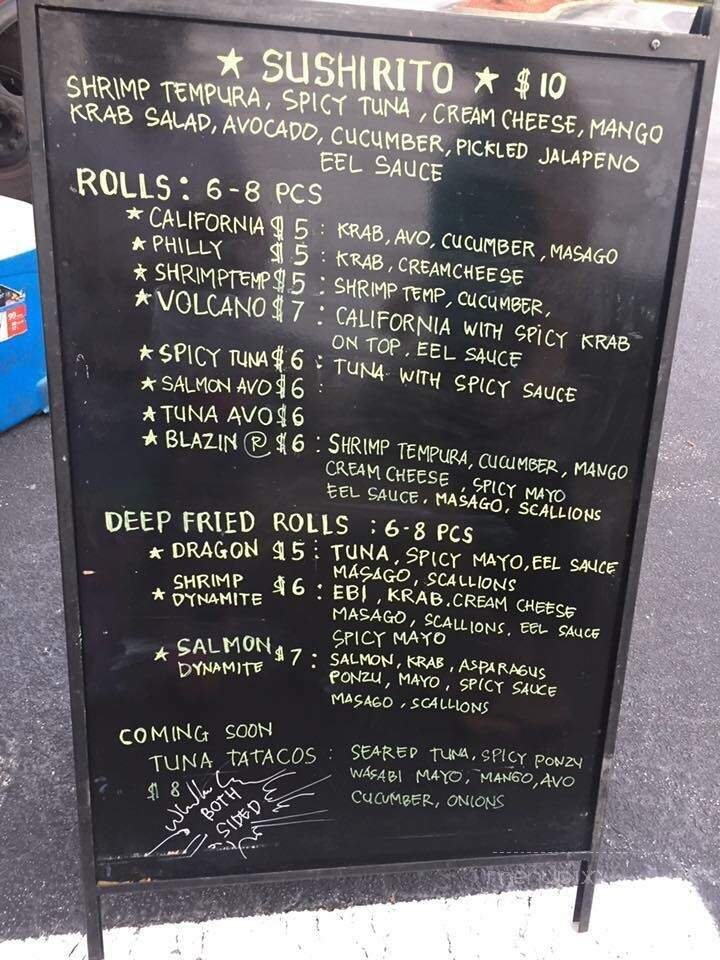 ★ SUSHIRITO ★ $10
SHRIMP TEMPURA, SPICY TUNA, CREAM CHEESE, MANGO
KRAB SALAD, AVOCADO, CUCUMBER, PICKLED JALAPENO
EEL SAUCE
ROLLS: 6-8 PCS
★ CALIFORNIA $5 : KRAB, AVO, CUCUMBER, MASAGO
★ PHILLY $5 : KRAB, CREAMCHEESE
★ SHRIMPTEMP $5 : SHRIMP TEMP, CUCUMBER,
★ VOLCANO $7 : CALIFORNIA WITH SPICY KRAB
ON TOP, EEL SAUCE
★ SPICY TUNA $6 : TUNA WITH SPICY SAUCE
★ SALMON AVO $6 :
★ TUNA AVO $6
★ BLAZIN Ⓡ $6 : SHRIMP TEMPURA, CUCUMBER, MANGO
CREAM CHEESE, SPICY MAYO
EEL SAUCE, MASAGO, SCALLIONS
DEEP FRIED ROLLS : 6-8 PCS
★ DRAGON $5 : TUNA, SPICY MAYO, EEL SAUCE
MASAGO, SCALLIONS
★ SHRIMP DYNAMITE $6 : EBI, KRAB, CREAM CHEESE
MASAGO, SCALLIONS, EEL SAUCE
SPICY MAYO
★ SALMON DYNAMITE $7 : SALMON, KRAB, ASPARAGUS
PONZU, MAYO, SPICY SAUCE
MASAGO, SCALLIONS
COMING SOON
TUNA TATACOS : SEARED TUNA, SPICY PONZU
$8 WASABI MAYO, MANGO, AVO
CUCUMBER, ONIONS
BOTH
SIDED